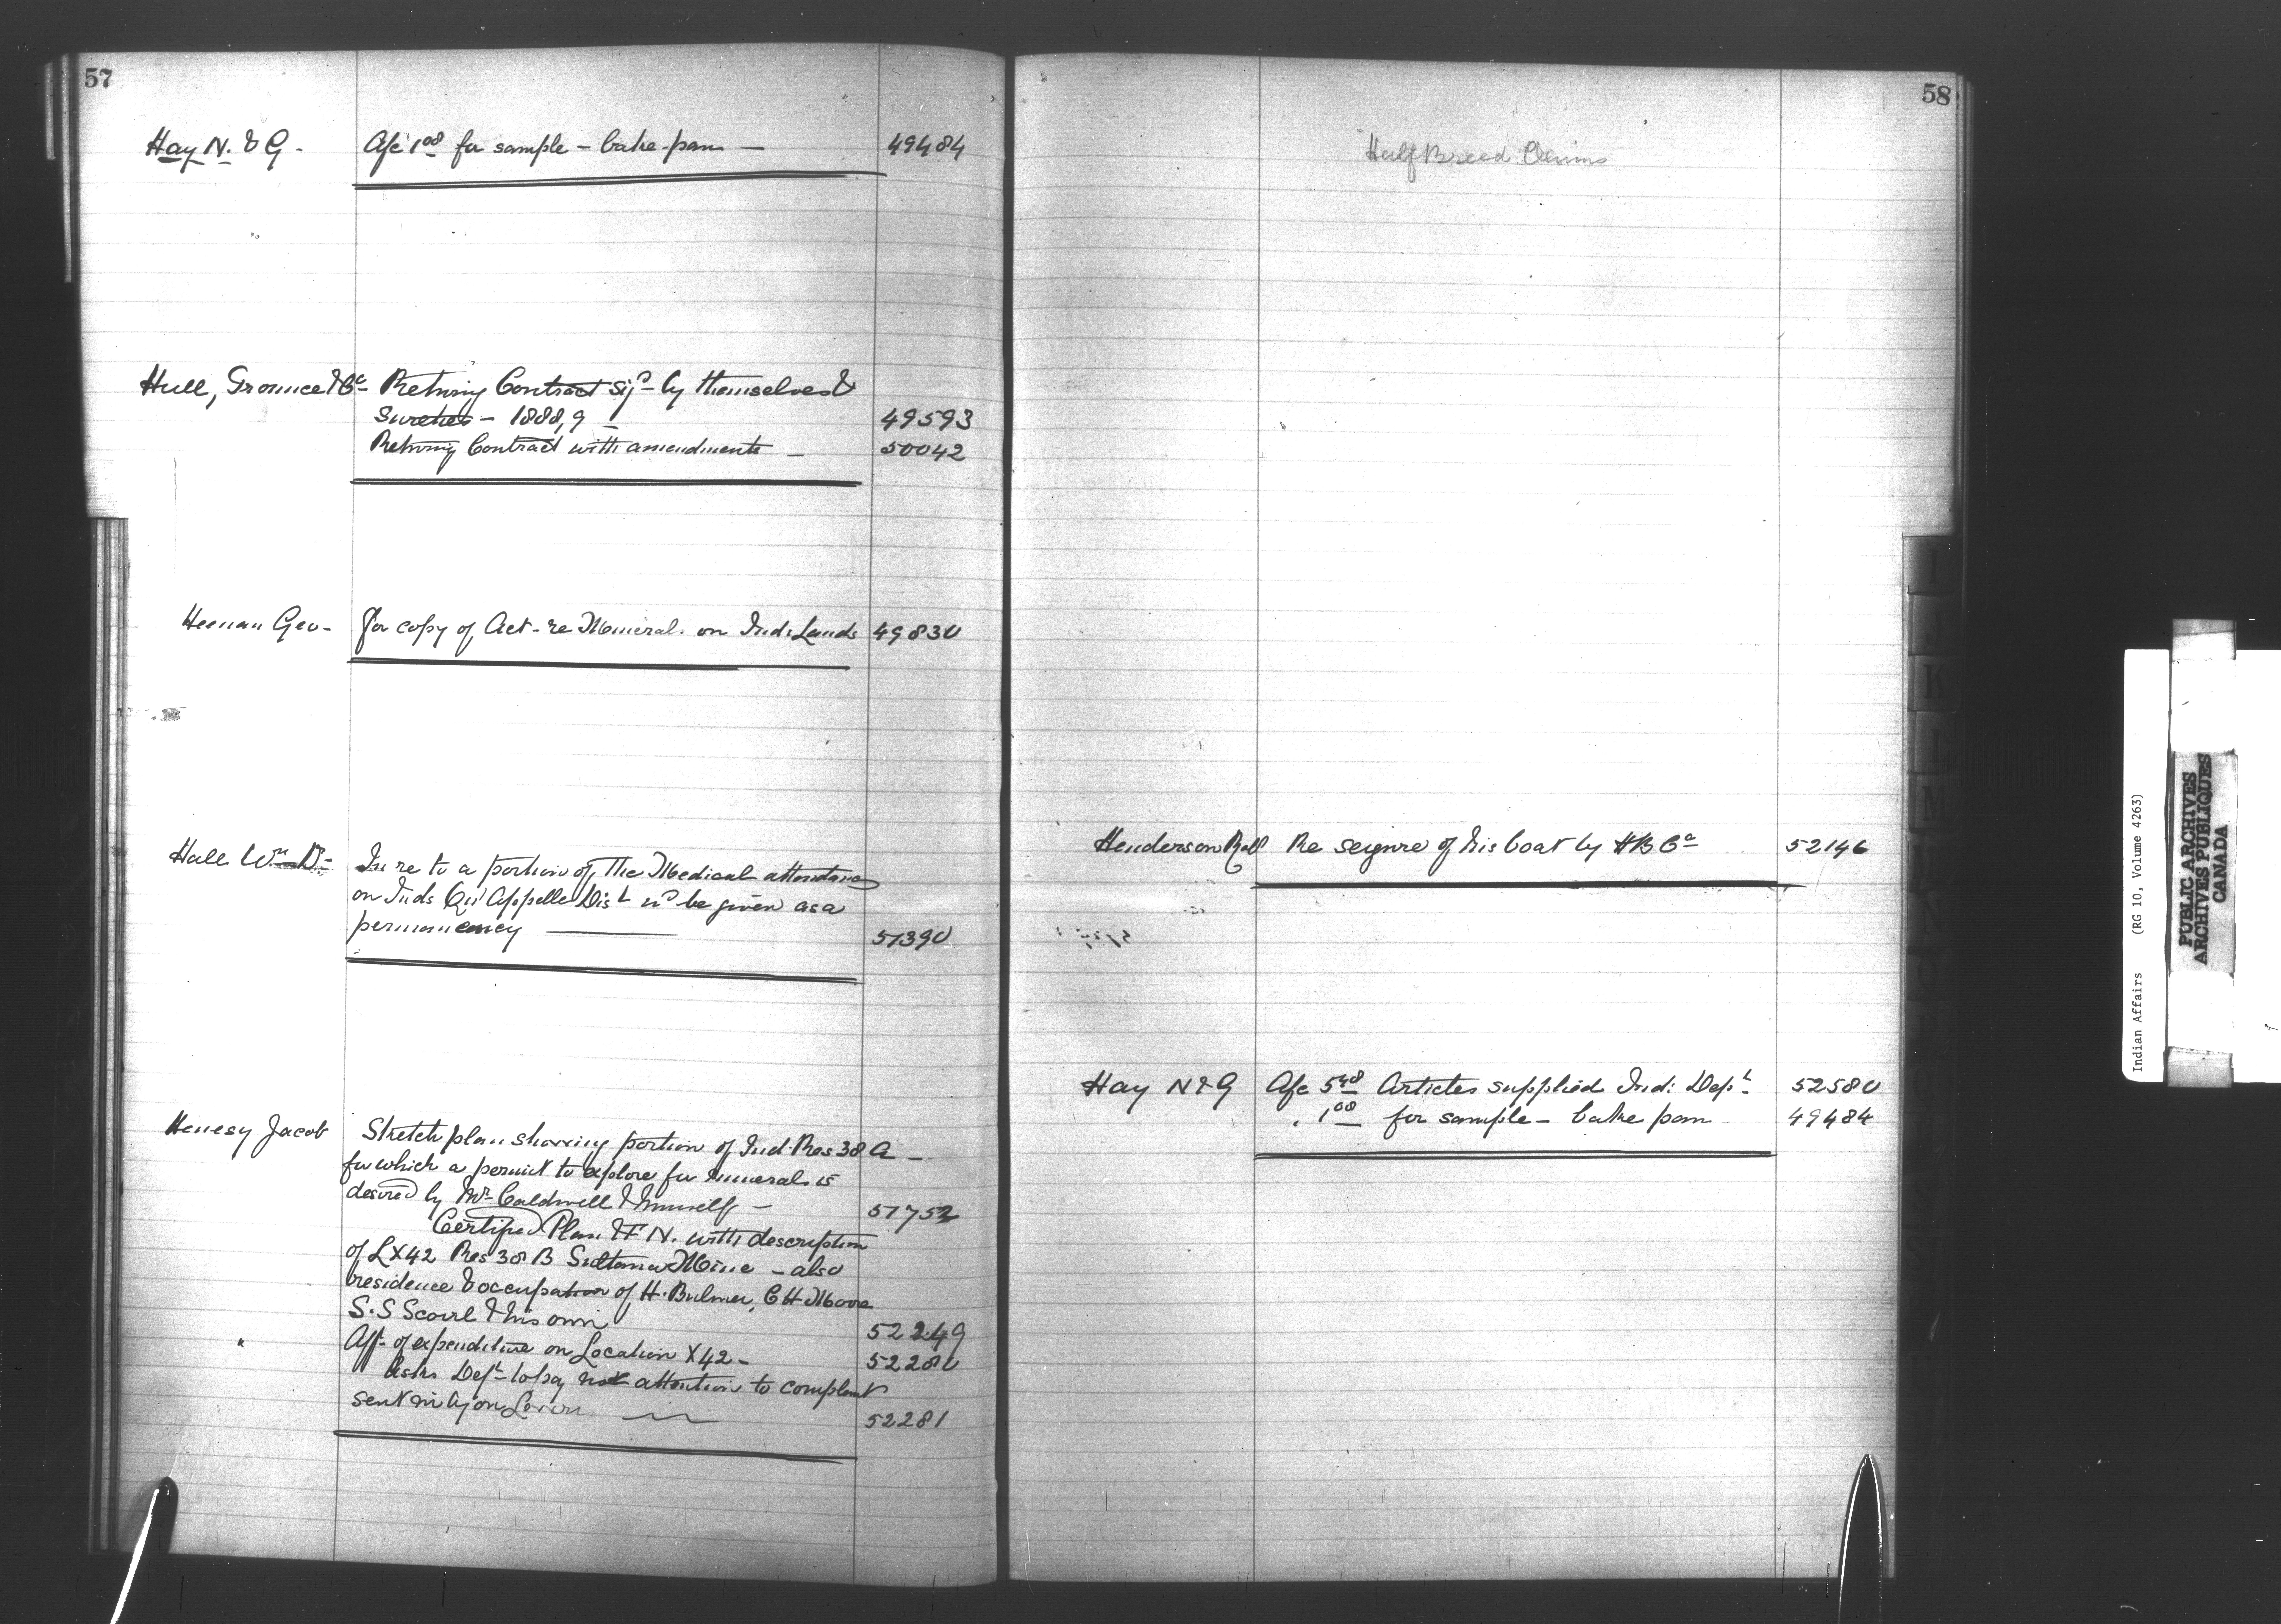 57
Hay N. & G. - A/c 1.00 for sample - bake-pan - 49484
Hull, & Co - Returning Contract sigd by themselves &
Sureties - 1888,9 - 49593
Returning Contract with amendments - 50042
Heenan Geo - For copy of Act - re Minerals on Ind: Lands 49830
Hall Wm Dr - In re to a portion of the Medical attendance
on Inds Qu'Appelle Dist to be given as a
permanency 51390
Henesy Jacob Sketch plan showing portion of Ind Res 38 A -
for which a permit to explore for minerals is
desired by Mr Caldwell & himself - 51752
Certified Plan & F N. with description
of L X42 Res 38 B Sultana Mine - also
residence & occupation of H. Bulmer, C H Moore
S. S & his own 52249
" Aff. of expenditure on Location X42 - 52280
Asks Dept to pay not attention to complaint
sent in by 52281
58
Half Breed Claims
Henderson Robt Re seizure of his boat by H B Co 52146
Hay N & G A/c 5.48 Articles supplied Ind: Dept 52580
" 1.00 for sample - bake pan 49484
I
J
K
L
M
Indian Affairs (RG 10, Volume 4263)
PUBLIC ARCHIVES
ARCHIVES PUBLIQUES
CANADA